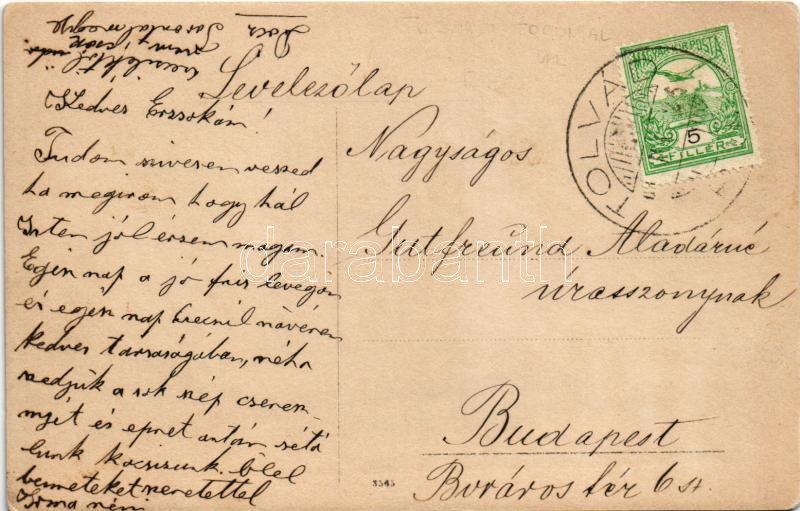 Levelezőlap
Kedves Erzsokám!
Tudom szivesen veszed
ha megirom hogy hál
Isten jól érzem magam.
Egész nap a jó friss levegőn
és egész nap nővérem
kedves társaságában, néha
szedjük a sok szép cseresz-
nyét és epret aztán sétá
lunk kocsizunk. Ölel
benneteket szeretettel
Irma néni
Nagyságos
Gutfreund Aladárné
úrasszonynak
Budapest
Boráros tér 6 sz.
3545
TOLVÁD
MAGYAR KIR. POSTA
5
FILLÉR
darabanth.com